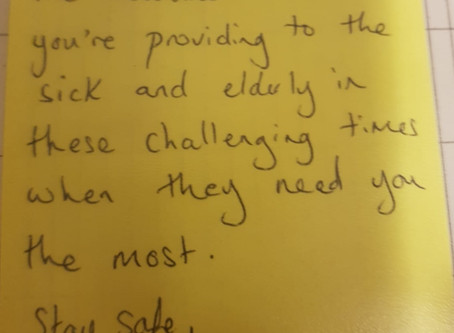 you're providing to the
sick and elderly in
these challenging times
when they need you
the most.
Stay safe,